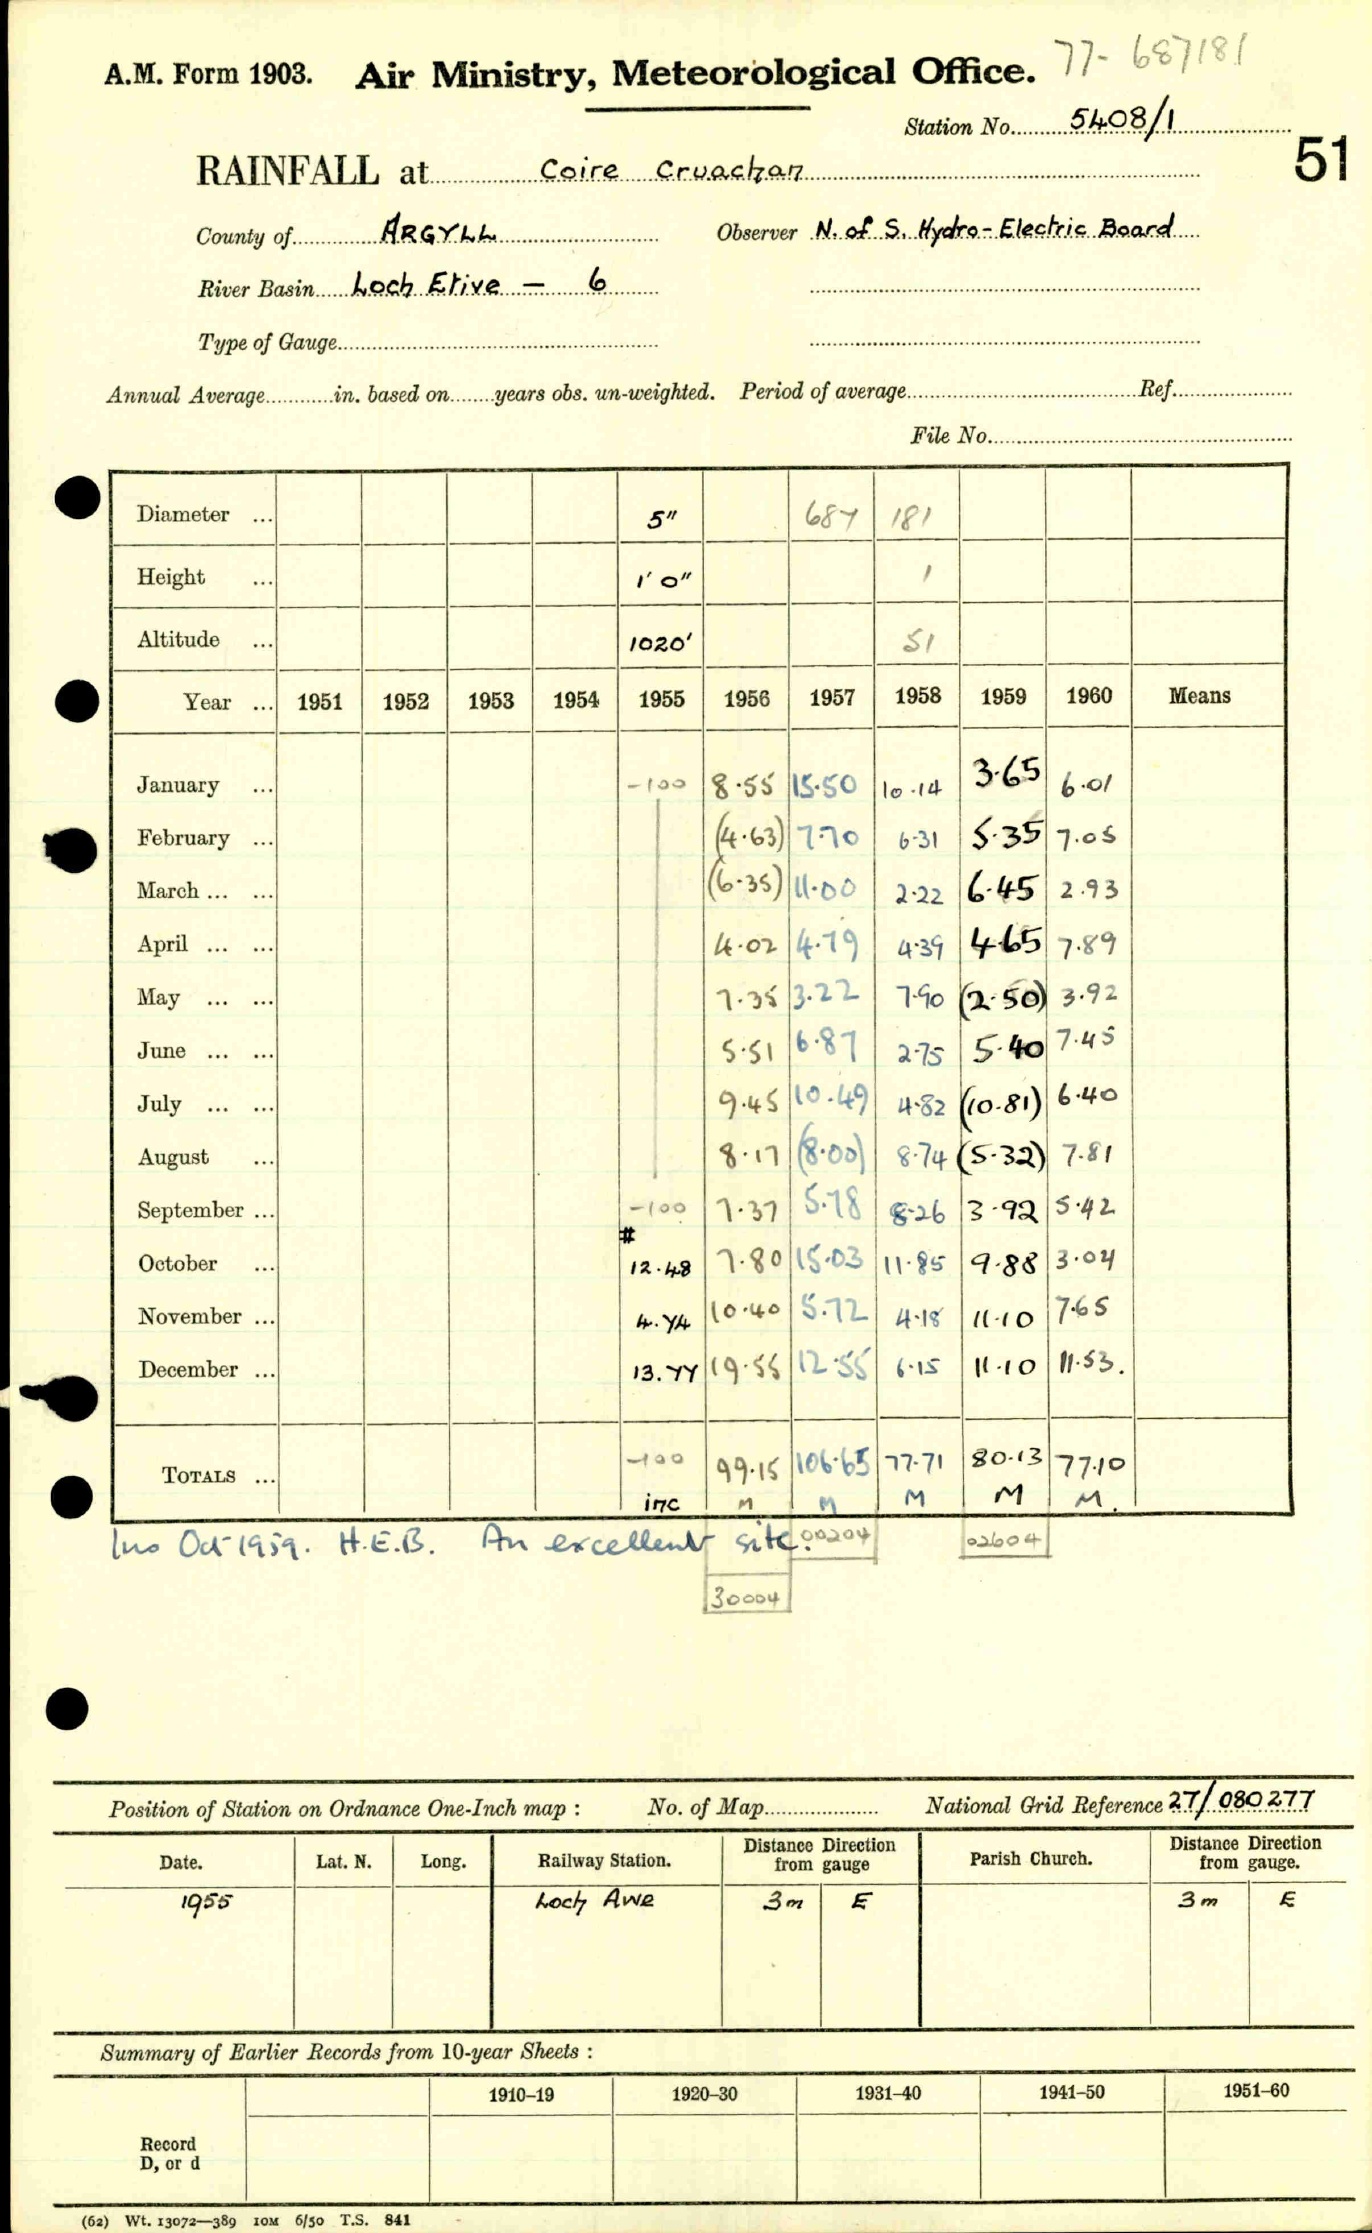 A.M. Form 1903. Air Ministry, Meteorological Office. 77- 687181
Station No. 5408/1
51
RAINFALL at Coire Cruachan
County of ARGYLL Observer N. of S. Hydro-Electric Board
River Basin Loch Etive - 6
Type of Gauge
Annual Average in. based on years obs. un-weighted. Period of average Ref.
File No.
Diameter ... 5" 687 181
Height ... 1' 0" 1
Altitude ... 1020' 51
Year ... 1951 1952 1953 1954 1955 1956 1957 1958 1959 1960 Means
January ... -100 8.55 15.50 10.14 3.65 6.01
February ... (4.63) 7.70 6.31 5.35 7.05
March ... ... (6.35) 11.00 2.22 6.45 2.93
April ... ... 4.02 4.79 4.39 4.65 7.89
May ... ... 7.35 3.22 7.90 (2.50) 3.92
June ... ... 5.51 6.87 2.75 5.40 7.45
July ... ... 9.45 10.49 4.82 (10.81) 6.40
August ... 8.17 (8.00) 8.74 (5.32) 7.81
September ... -100 7.37 5.78 8.26 3.92 5.42
October ... # 12.48 7.80 15.03 11.85 9.88 3.04
November ... 4.74 10.40 5.72 4.18 11.10 7.65
December ... 13.77 19.55 12.55 6.15 11.10 11.53.
TOTALS ... -100 99.15 106.65 77.71 80.13 77.10
inc M M M M M.
Ins Oct 1959. H.E.B. An excellent site. 00204 02604
30004
Position of Station on Ordnance One-Inch map : No. of Map National Grid Reference 27/080277
Date. Lat. N. Long. Railway Station. Distance Direction from gauge Parish Church. Distance Direction from gauge.
1955 Loch Awe 3m E 3m E
Summary of Earlier Records from 10-year Sheets :
1910–19 1920–30 1931–40 1941–50 1951–60
Record
D, or d
(62) Wt. 13072—389 10M 6/50 T.S. 841